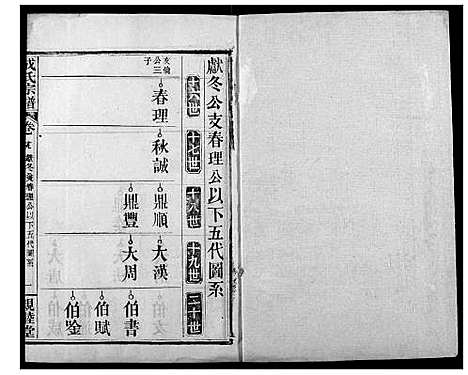 獻冬公支春理公以下五代圖系
十六世
十七世
十八世
十九世
二十世
支倫
公三
子
春理
秋誠
鼎順
鼎豐
大漢
大周
伯書
伯賦
伯鑒
成氏宗譜
卷
獻冬公春理公以下五代圖系
一
親睦堂